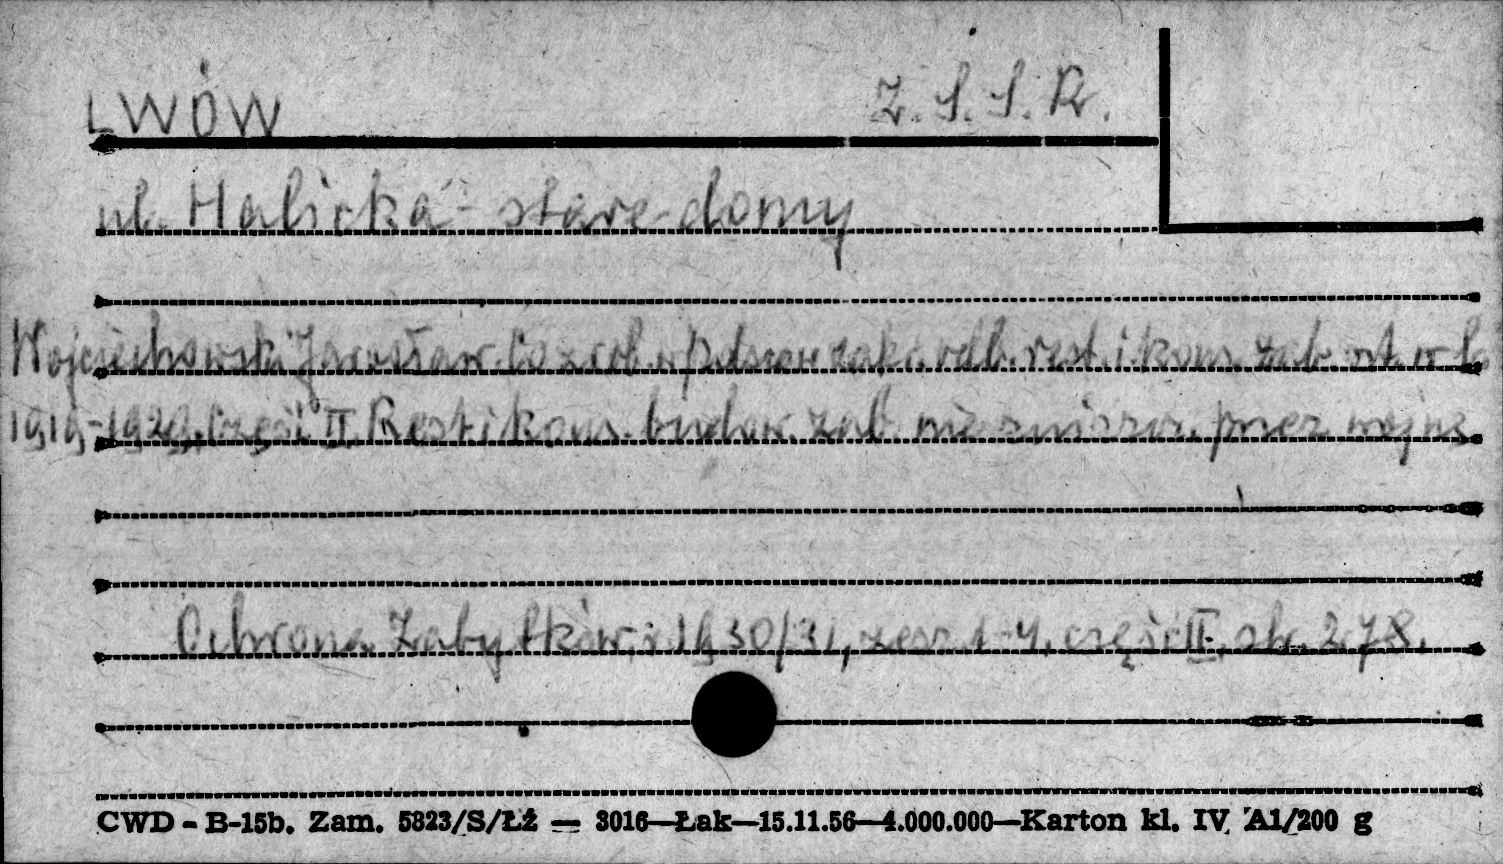 LWÓW Z.S.S.R.
ul. Halicka - stare domy
Wojciechowski Jarosław. Co zrob. w Państw. zakr. odb. rest. i kons. zab. szt. w l.
1919-1929. Część II. Rest. i kons. budow. zab. nie zniszcz. przez wojnę
Ochrona Zabytków, r. 1930/31, zesz. 1-4, część II, str. 278.
CWD - B-15b. Zam. 5823/S/Łż — 3016—Łak—15.11.56—4.000.000—Karton kl. IV A1/200 g